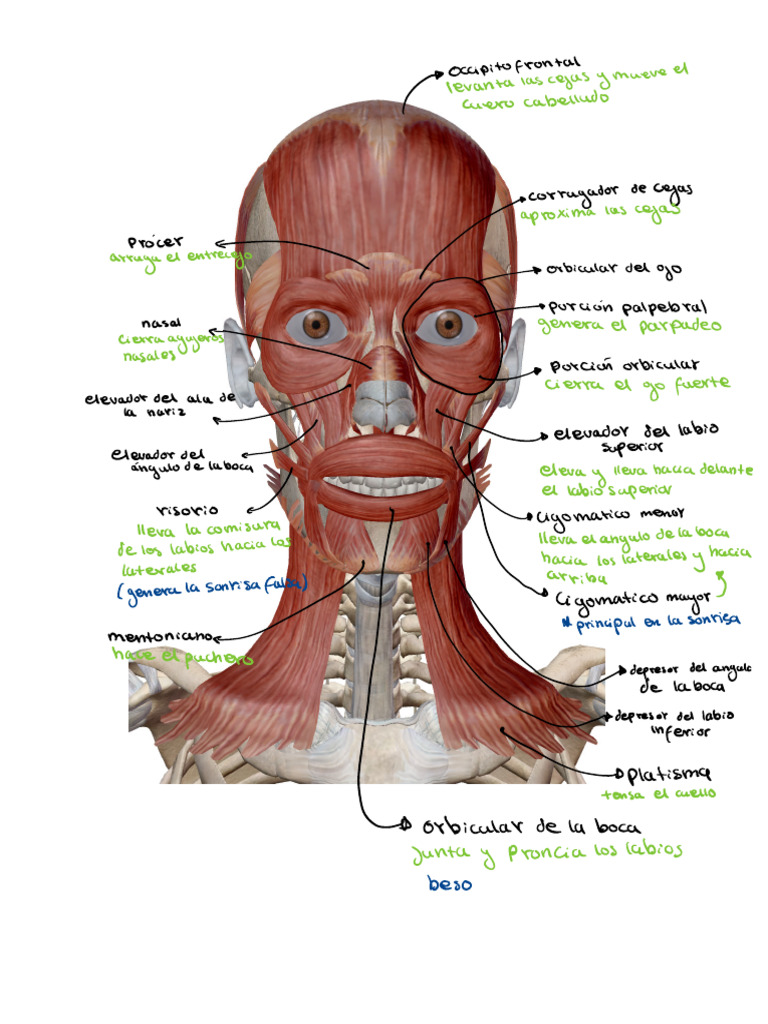 Occipitofrontal
levanta las cejas y mueve el
cuero cabelludo
corrugador de cejas
aproxima las cejas
Prócer
arruga el entrecejo
orbicular del ojo
nasal
cierra agujeros
nasales
porción palpebral
genera el parpadeo
porción orbicular
cierra el ojo fuerte
elevador del ala de
la nariz
elevador del labio
superior
eleva y lleva hacia delante
el labio superior
elevador del
ángulo de la boca
risorio
lleva la comisura
de los labios hacia los
laterales
(genera la sonrisa falsa)
cigomatico menor
lleva el angulo de la boca
hacia los laterales y hacia
arriba
cigomatico mayor
* principal en la sonrisa
mentoniano
hace el puchero
depresor del angulo
de la boca
depresor del labio
inferior
platisma
tensa el cuello
orbicular de la boca
Junta y Proncia los labios
beso